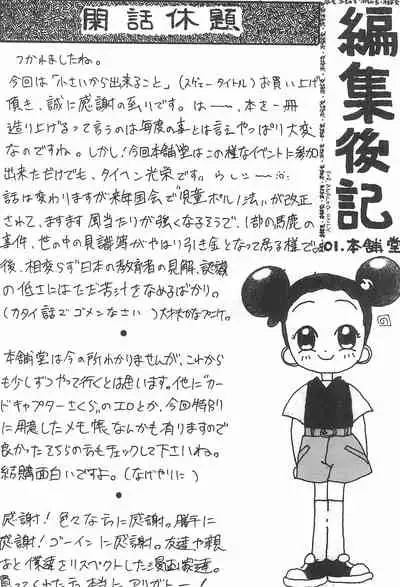 閑話休題
編集後記
01.本舗堂
つかれましたね。
今回は「小さいから出来ること」(スゲェータイトル)お買い上げ
頂き、誠に感謝の至りです。はーー、本を一冊
造り上げるって言うのは毎度の事とは言え、やっぱり大変
なのですね。しかし!今回本舗堂はこの様なイベントに参加
出来ただけでも、タイヘン光栄です。
話は変わりますが来年国会で「児童ポルノ法」が改正
されて、ますます風当たりが強くなるそうで、1部の馬鹿の
事件、世の中の見識等がやはり引き金となって居る様で。
後、相変らず日本の教育者の見解、認識
の低さにはただ苦汁をなめるばかり。
(カタイ話でゴメンなさい)
●
本舗堂は今の所わかりませんが、これから
も少しずつやって行くとは思います。他に「カー
ドキャプターさくら」のエロとか、今回特別
に用意したメモ帳なんかも有りますので
良かったらそちらの方もチェックして下さいね。
結構面白いですよ。(なげやりに)
●
感謝!色々な方に感謝。勝手に
感謝!ゴーインに感謝。友達や親
など僕達をリスペクトした漫画家達。
買ってくれた方、本当にアリガトー!